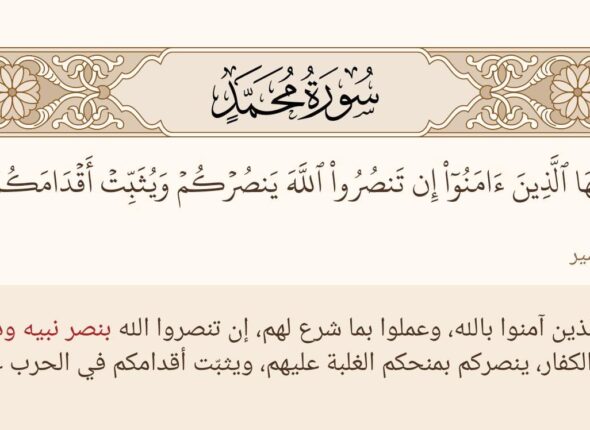 سُورَةُ مُحَمَّدٍ
ٱلَّذِينَ ءَامَنُوٓا۟ إِن تَنصُرُوا۟ ٱللَّهَ يَنصُرْكُمْ وَيُثَبِّتْ أَقْدَامَكُمْ
آمنوا بالله، وعملوا بما شرع لهم، إن تنصروا الله بنصر نبيه
الكفار، ينصركم بمنحكم الغلبة عليهم، ويثبّت أقدامكم في الحرب